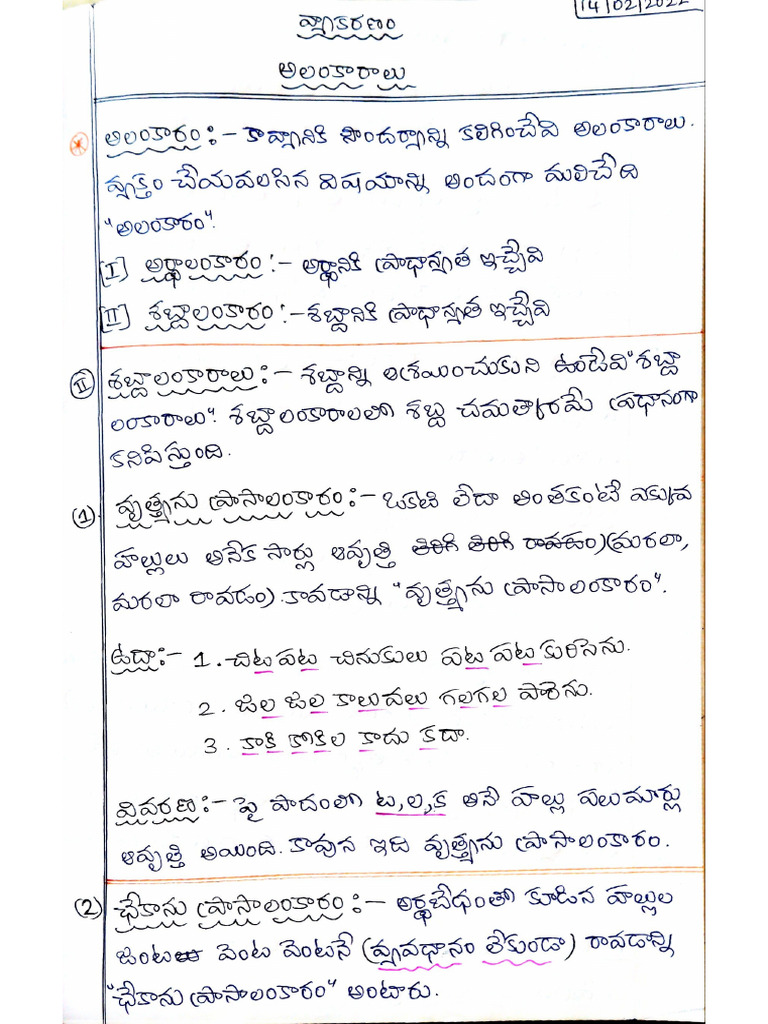 14/02/2022
వ్యాకరణం
అలంకారాలు
అలంకారం :- కావ్యానికి సౌందర్యాన్ని కలిగించేవి అలంకారాలు.
వ్యక్తం చేయవలసిన విషయాన్ని అందంగా మలిచేది
"అలంకారం".
[I] అర్థాలంకారం :- అర్థానికి ప్రాధాన్యత ఇచ్చేవి
[II] శబ్దాలంకారం :- శబ్దానికి ప్రాధాన్యత ఇచ్చేవి
II శబ్దాలంకారాలు :- శబ్దాన్ని ఆశ్రయించుకుని ఉండేవి "శబ్దా
లంకారాలు". శబ్దాలంకారాలలో శబ్ద చమత్కారమే ప్రధానంగా
కనిపిస్తుంది.
(1) వృత్త్యనుప్రాసాలంకారం :- ఒకటి లేదా అంతకంటే ఎక్కువ
హల్లులు అనేక సార్లు ఆవృత్తి తిరిగి తిరిగి రావడం) (మరలా,
మరలా రావడం). కావడాన్ని "వృత్త్యనుప్రాసాలంకారం".
ఉదా :- 1. చిటపట చినుకులు పట పట కురిసెను.
2. జల జల కాలువలు గలగల పారెను.
3. కాకి కోకిల కాదు కదా.
వివరణ :- పై పాదంలో ట, ల, క అనే హల్లు పలుమార్లు
ఆవృత్తి అయింది. కావున ఇది వృత్త్యనుప్రాసాలంకారం.
(2) ఛేకానుప్రాసాలంకారం :- అర్థబేధంతో కూడిన హల్లుల
జంట వెంట వెంటనే (వ్యవధానం లేకుండా) రావడాన్ని
"ఛేకానుప్రాసాలంకారం" అంటారు.